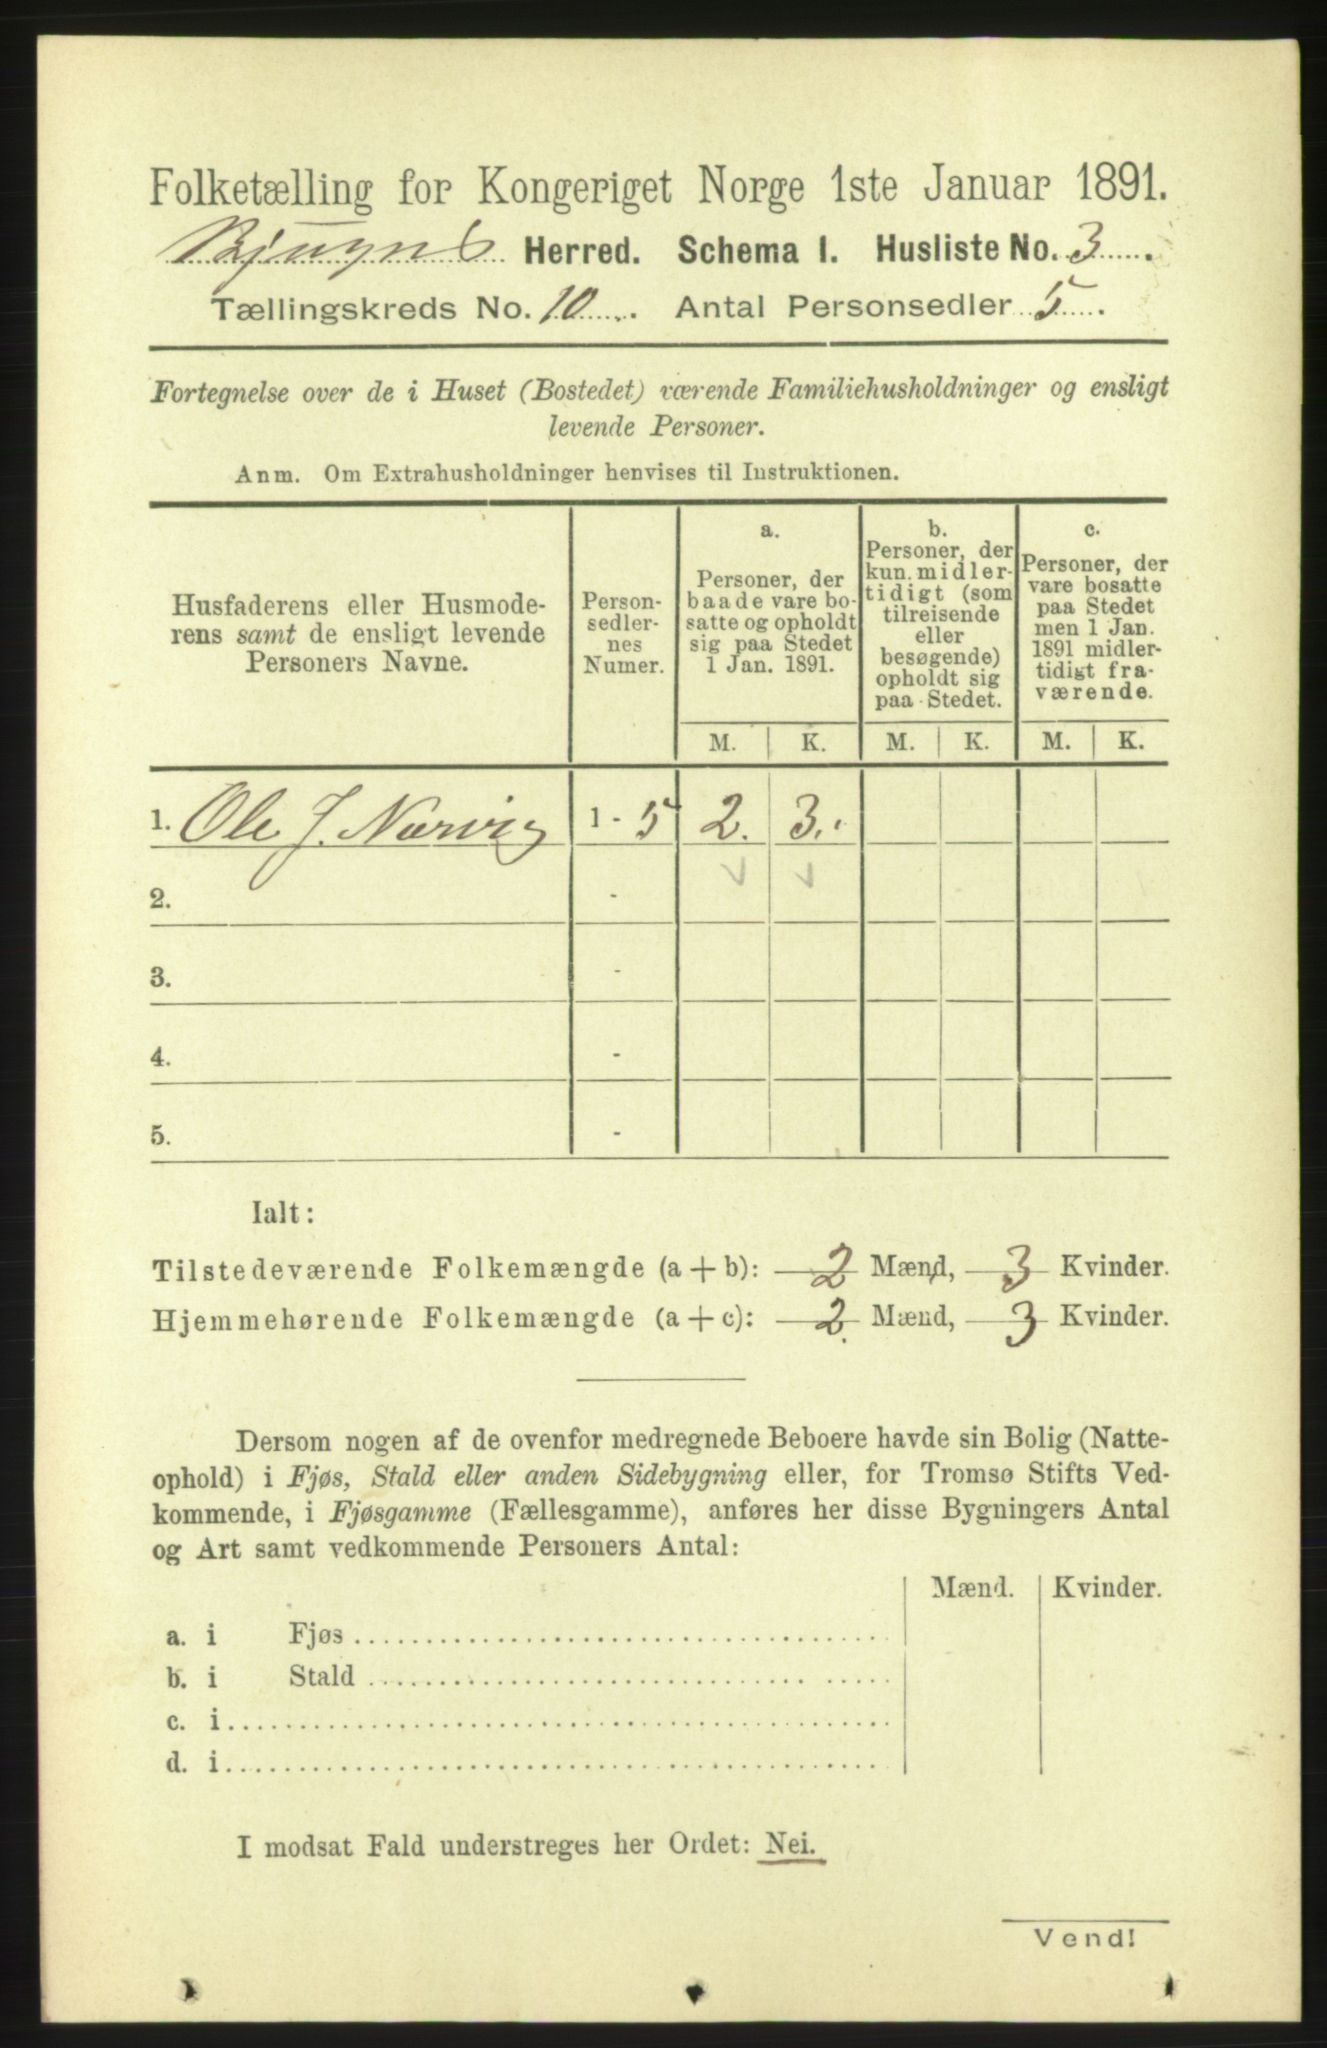 Folketælling for Kongeriget Norge 1ste Januar 1891.
Bjugns Herred. Schema I. Husliste No. 3.
Tællingskreds No. 10. Antal Personsedler 5.
Fortegnelse over de i Huset (Bostedet) værende Familiehusholdninger og ensligt
levende Personer.
Anm. Om Extrahusholdninger henvises til Instruktionen.
Husfaderens eller Husmode-
rens samt de ensligt levende
Personers Navne.
Person-
sedler-
nes
Numer.
a.
Personer, der
baade vare bo-
satte og opholdt
sig paa Stedet
1 Jan. 1891.
b.
Personer, der
kun midler-
tidigt (som
tilreisende
eller
besøgende)
opholdt sig
paa Stedet.
c.
Personer, der
vare bosatte
paa Stedet
men 1 Jan.
1891 midler-
tidigt fra-
værende.
M. K. M. K. M. K.
1. Ole J. Narvig 1 - 5 2. 3.
2. -
3. -
4. -
5. -
Ialt:
Tilstedeværende Folkemængde (a + b): 2 Mænd, 3 Kvinder.
Hjemmehørende Folkemængde (a + c): 2 Mænd, 3 Kvinder.
Dersom nogen af de ovenfor medregnede Beboere havde sin Bolig (Natte-
ophold) i Fjøs, Stald eller anden Sidebygning eller, for Tromsø Stifts Ved-
kommende, i Fjøsgamme (Fællesgamme), anføres her disse Bygningers Antal
og Art samt vedkommende Personers Antal:
Mænd. Kvinder.
a. i Fjøs
b. i Stald
c. i
d. i
I modsat Fald understreges her Ordet: Nei.
Vend!